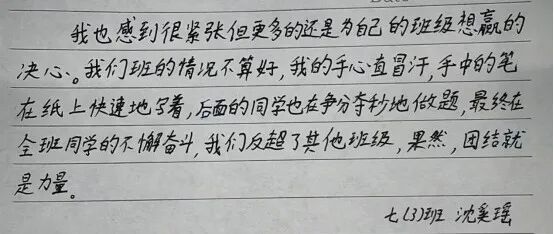 我也感到很紧张但更多的还是为自己的班级想赢的
决心。我们班的情况不算好，我的手心直冒汗，手中的笔
在纸上快速地写着，后面的同学也在争分夺秒地做题，最终在
全班同学的不懈奋斗，我们反超了其他班级，果然，团结就
是力量。
七(3)班 沈奚瑶